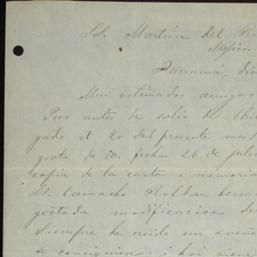 Sr. Martinez del R
Mexico
Panamá, Dic
Mui estimados amigos
Poco antes de salir de Chi
gado el 20 del presente mes
grata de Ud. fecha 26 de julio
copia de la carta i memoria
Sr. Camacho Roldan
yectada modificacion de
Siempre he creido un sueño
i hoi